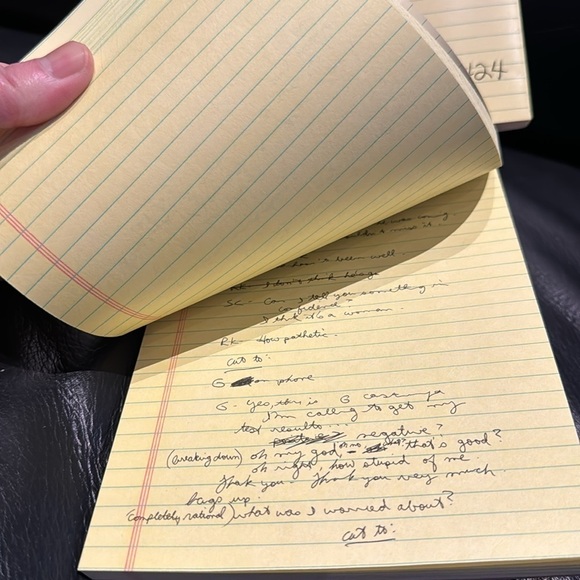 424
was coming
miss it.
hasn't been well.
RK - I don't think
SC - Can I tell you something in
confidence -
I think it's a woman
RK - How pathetic.
cut to:
G on phone
G - Yes, this is G
I'm calling to get my
test results...
negative?
(breaking down) oh my god, oh no - that's good?
oh right, how stupid of me.
Thank you - Thank you very much.
hangs up.
(completely rational) what was I worried about?
cut to: